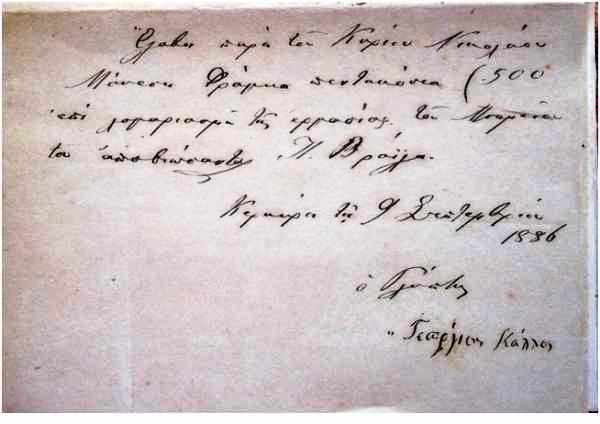 Ἔλαβον παρὰ τοῦ Κυρίου Νικολάου
Μάνεση Φράγκα πεντακόσια (500
ἐπὶ λογαριασμῷ τῆς ἐργασίας τοῦ Μνημείου
τοῦ ἀποβιώσαντος Π. Βράϊλα.
Κερκύρα τῇ 9 Σεπτεμβρίου
1886
ὁ Γλύπτης
Γεώργιος Κάλλος